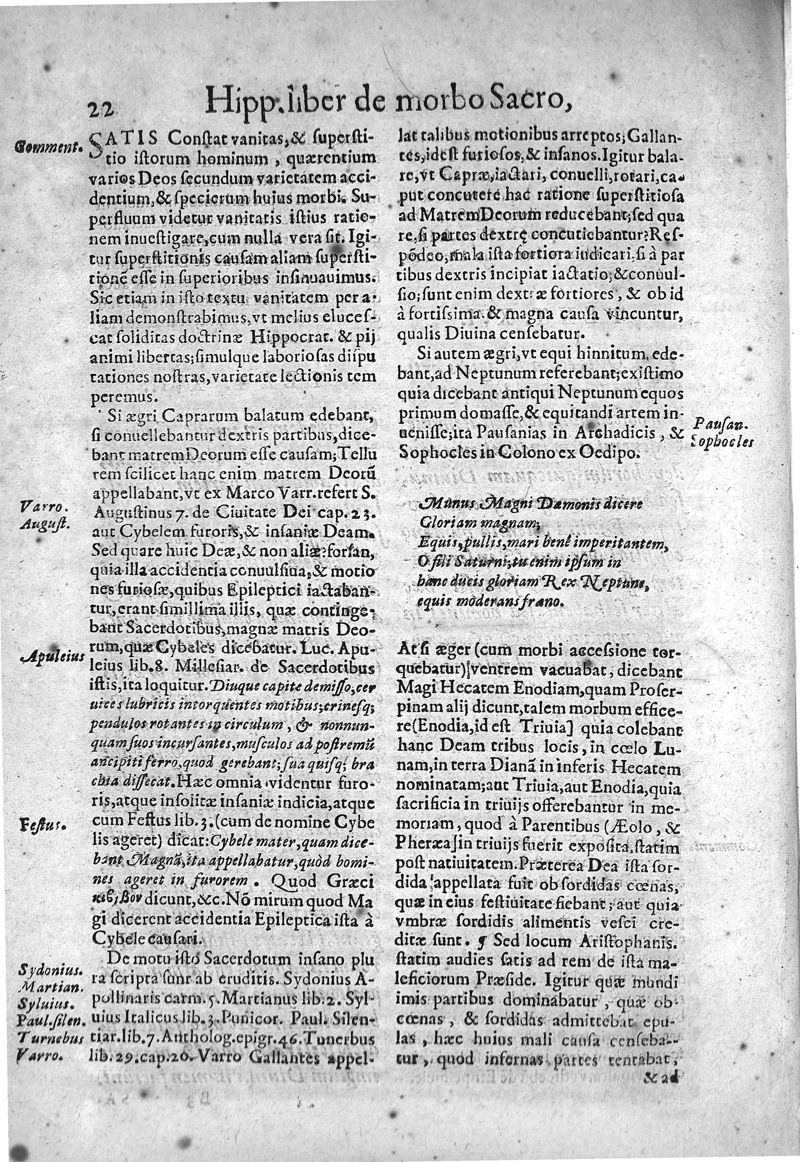 22
Hipp. liber de morbo Sacro,
Comment.
SATIS Constat vanitas, & supersti-
tio istorum hominum, quærentium
varios Deos secundum varietatem acci-
dentium, & specierum huius morbi. Su-
perfluum videtur vanitatis istius ratio-
nem inuestigare, cum nulla vera sit. Igi-
tur superstitionis causam aliam supersti-
tionē esse in superioribus insinuauimus.
Sic etiam in isto textu vanitatem per a-
liam demonstrabimus, vt melius eluces-
cat soliditas doctrinæ Hippocrat. & pij
animi libertas; simulque laboriosas dispu
tationes nostras, varietate lectionis tem
peremus.
Si ægri Caprarum balatum edebant,
si conuellebantur dextris partibus, dice-
bant matrem Deorum esse causam; Tellu
rem scilicet hanc enim matrem Deorū
appellabant, vt ex Marco Varr. refert S.
Varro.
August.
Augustinus 7. de Ciuitate Dei cap. 23.
aut Cybelem furoris, & insaniæ Deam.
Sed quare huic Deæ, & non aliæ: forsan,
quia illa accidentia conuulsiua, & motio
nes furiosæ, quibus Epileptici iactaban-
tur, erant simillima illis, quæ continge-
bant Sacerdotibus, magnæ matris Deo-
rum, quæ Cybeles dicebatur. Luc. Apu-
Apuleius
leius lib. 8. Millesiar. de Sacerdotibus
istis, ita loquitur. Diuque capite demisso, cer
uices lubricis intorquentes motibus; crinesq;
pendulos rotantes in circulum, & nonnun-
quam suos incursantes, musculos ad postremū
ancipiti ferro, quod gerebant; sua quisq; bra
chia dissecat. Hæc omnia videntur furo-
ris, atque insolitæ insaniæ indicia, atque
Festus.
cum Festus lib. 3. (cum de nomine Cybe
lis ageret) dicat: Cybele mater, quam dice-
bant Magnā, ita appellabatur, quòd homi-
nes ageret in furorem. Quod Græci
dicunt, &c. Nō mirum quod Ma
gi dicerent accidentia Epileptica ista à
Cybele causari.
De motu isto Sacerdotum insano plu
Sydonius.
Martian.
Syluius.
Paul. silen.
Turnebus
Varro.
ra scripta sunt ab eruditis. Sydonius A-
pollinaris carm. 5. Martianus lib. 2. Syl-
uius Italicus lib. 3. Punicor. Paul. Silen-
tiar. lib. 7. Antholog. epigr. 46. Tunerbus
lib. 29. cap. 20. Varro Gallantes appel-
lat talibus motionibus arreptos; Gallan-
tes, id est furiosos, & insanos. Igitur bala-
re, vt Capræ, iactari, conuelli, rotari, ca-
put concutere hac ratione superstitiosa
ad Matrem Deorum reducebant; sed qua
re, si partes dextrę concutiebantur? Res-
pōdeo; mala ista fortiora iudicari, si à par
tibus dextris incipiat iactatio; & conuul-
sio; sunt enim dextræ fortiores, & ob id
à fortissima. & magna causa vincuntur,
qualis Diuina censebatur.
Si autem ægri, vt equi hinnitum. ede-
bant, ad Neptunum referebant; existimo
quia dicebant antiqui Neptunum equos
primum domasse, & equitandi artem in-
uenisse; ita Pausanias in Archadicis, &
Pausan.
Sophocles
Sophocles in Colono ex Oedipo.
Munus Magni Dæmonis dicere
Gloriam magnam;
Equis, pullis, mari benè imperitantem,
O fili Saturni; tu enim ipsum in
hanc ducis gloriam Rex Neptune,
equis moderans fræno.
At si æger (cum morbi accessione tor-
quebatur) ventrem vacuabat, dicebant
Magi Hecatem Enodiam, quam Proser-
pinam alij dicunt, talem morbum effice-
re (Enodia, id est Triuia] quia colebant
hanc Deam tribus locis, in cœlo Lu-
nam, in terra Dianā in inferis Hecatem
nominatam; aut Triuia, aut Enodia, quia
sacrificia in triuijs offerebantur in me-
moriam, quod à Parentibus (Æolo, &
Pheræa] in triuijs fuerit exposita, statim
post natiuitatem. Præterea Dea ista sor-
dida appellata fuit ob sordidas cœnas;
quæ in eius festiuitate fiebant; aut quia
vmbræ sordidis alimentis vesci cre-
ditæ sunt. ¶ Sed locum Aristophanis.
statim audies satis ad rem de ista ma-
leficiorum Præside. Igitur quæ mundi
imis partibus dominabatur, quæ ob-
cœnas, & sordidas admittebat epu-
las, hæc huius mali causa censeba-
tur, quod infernas partes tentabat,
& ad